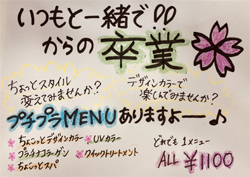 いつもと一緒で♡♡
からの卒業
ちょっとスタイル
変えてみませんか?
デザインカラーで
楽しんでみませんか?
プチプラMENUありますよー♪
ちょこっとデザインカラー
UVカラー
プラチナコラーゲン
クイックトリートメント
ちょこっとスパ
どれでも1メニュー
ALL ¥1100